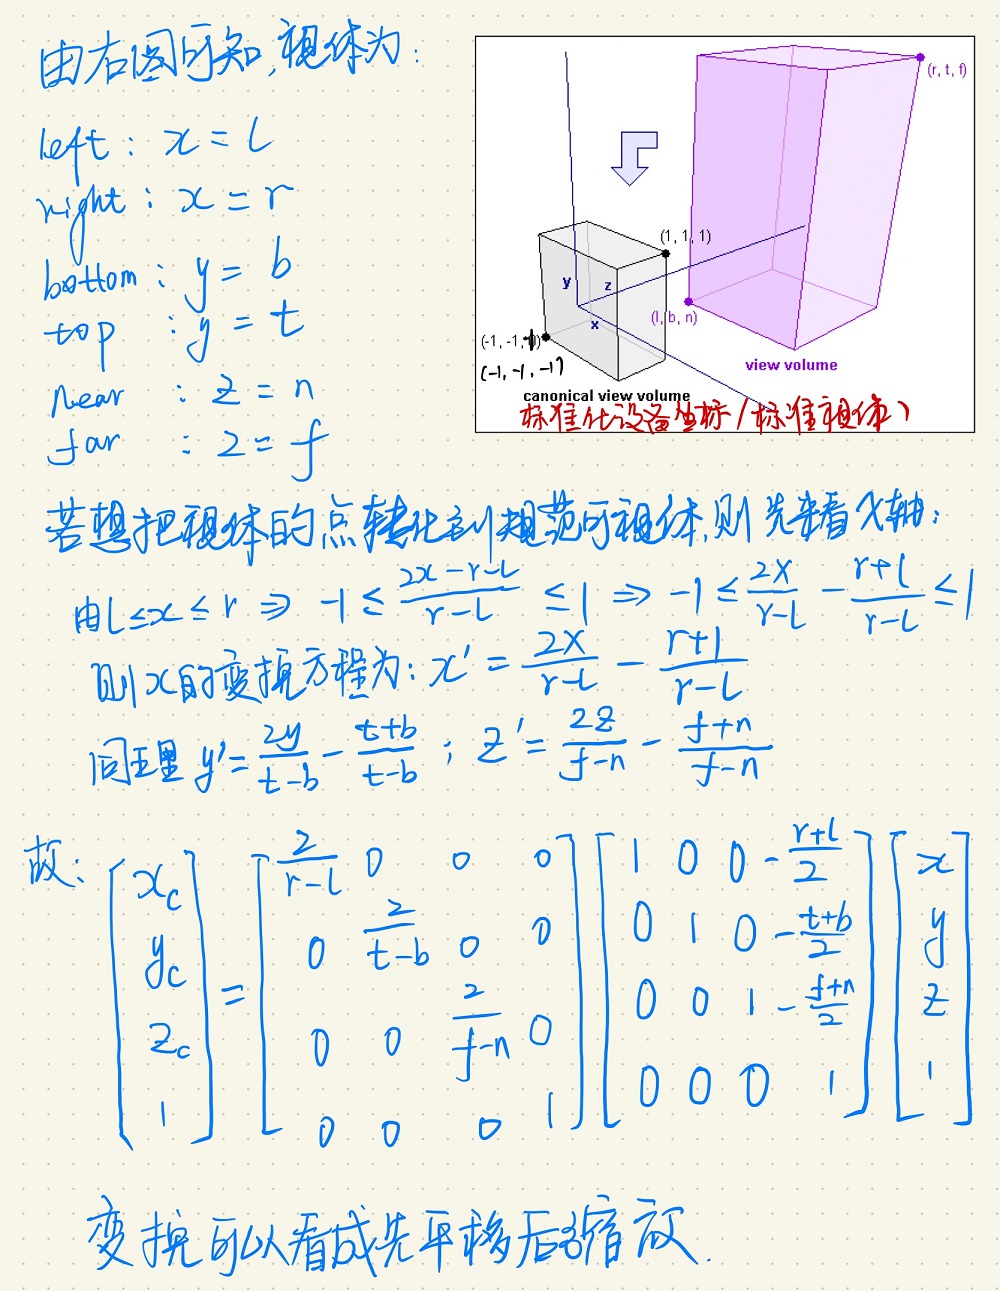 由右图可知,视体为:
left : x = l
right : x = r
bottom : y = b
top : y = t
near : z = n
far : z = f
(r, t, f)
(1, 1, 1)
y
z
x
(l, b, n)
(-1, -1, -1)
view volume
canonical view volume
标准化设备坐标(标准视体)
若想把视体的点转化到规范可视体,则先来看X轴:
由 l ≤ x ≤ r ⇒ -1 ≤ (2x-r-l)/(r-l) ≤ 1 ⇒ -1 ≤ 2x/(r-l) - (r+l)/(r-l) ≤ 1
则x的变换方程为: x' = 2x/(r-l) - (r+l)/(r-l)
同理 y' = 2y/(t-b) - (t+b)/(t-b) ; z' = 2z/(f-n) - (f+n)/(f-n)
故: [xc yc zc 1] = [2/(r-l) 0 0 0; 0 2/(t-b) 0 0; 0 0 2/(f-n) 0; 0 0 0 1] [1 0 0 -(r+l)/2; 0 1 0 -(t+b)/2; 0 0 1 -(f+n)/2; 0 0 0 1] [x y z 1]
变换可以看成先平移后缩放.